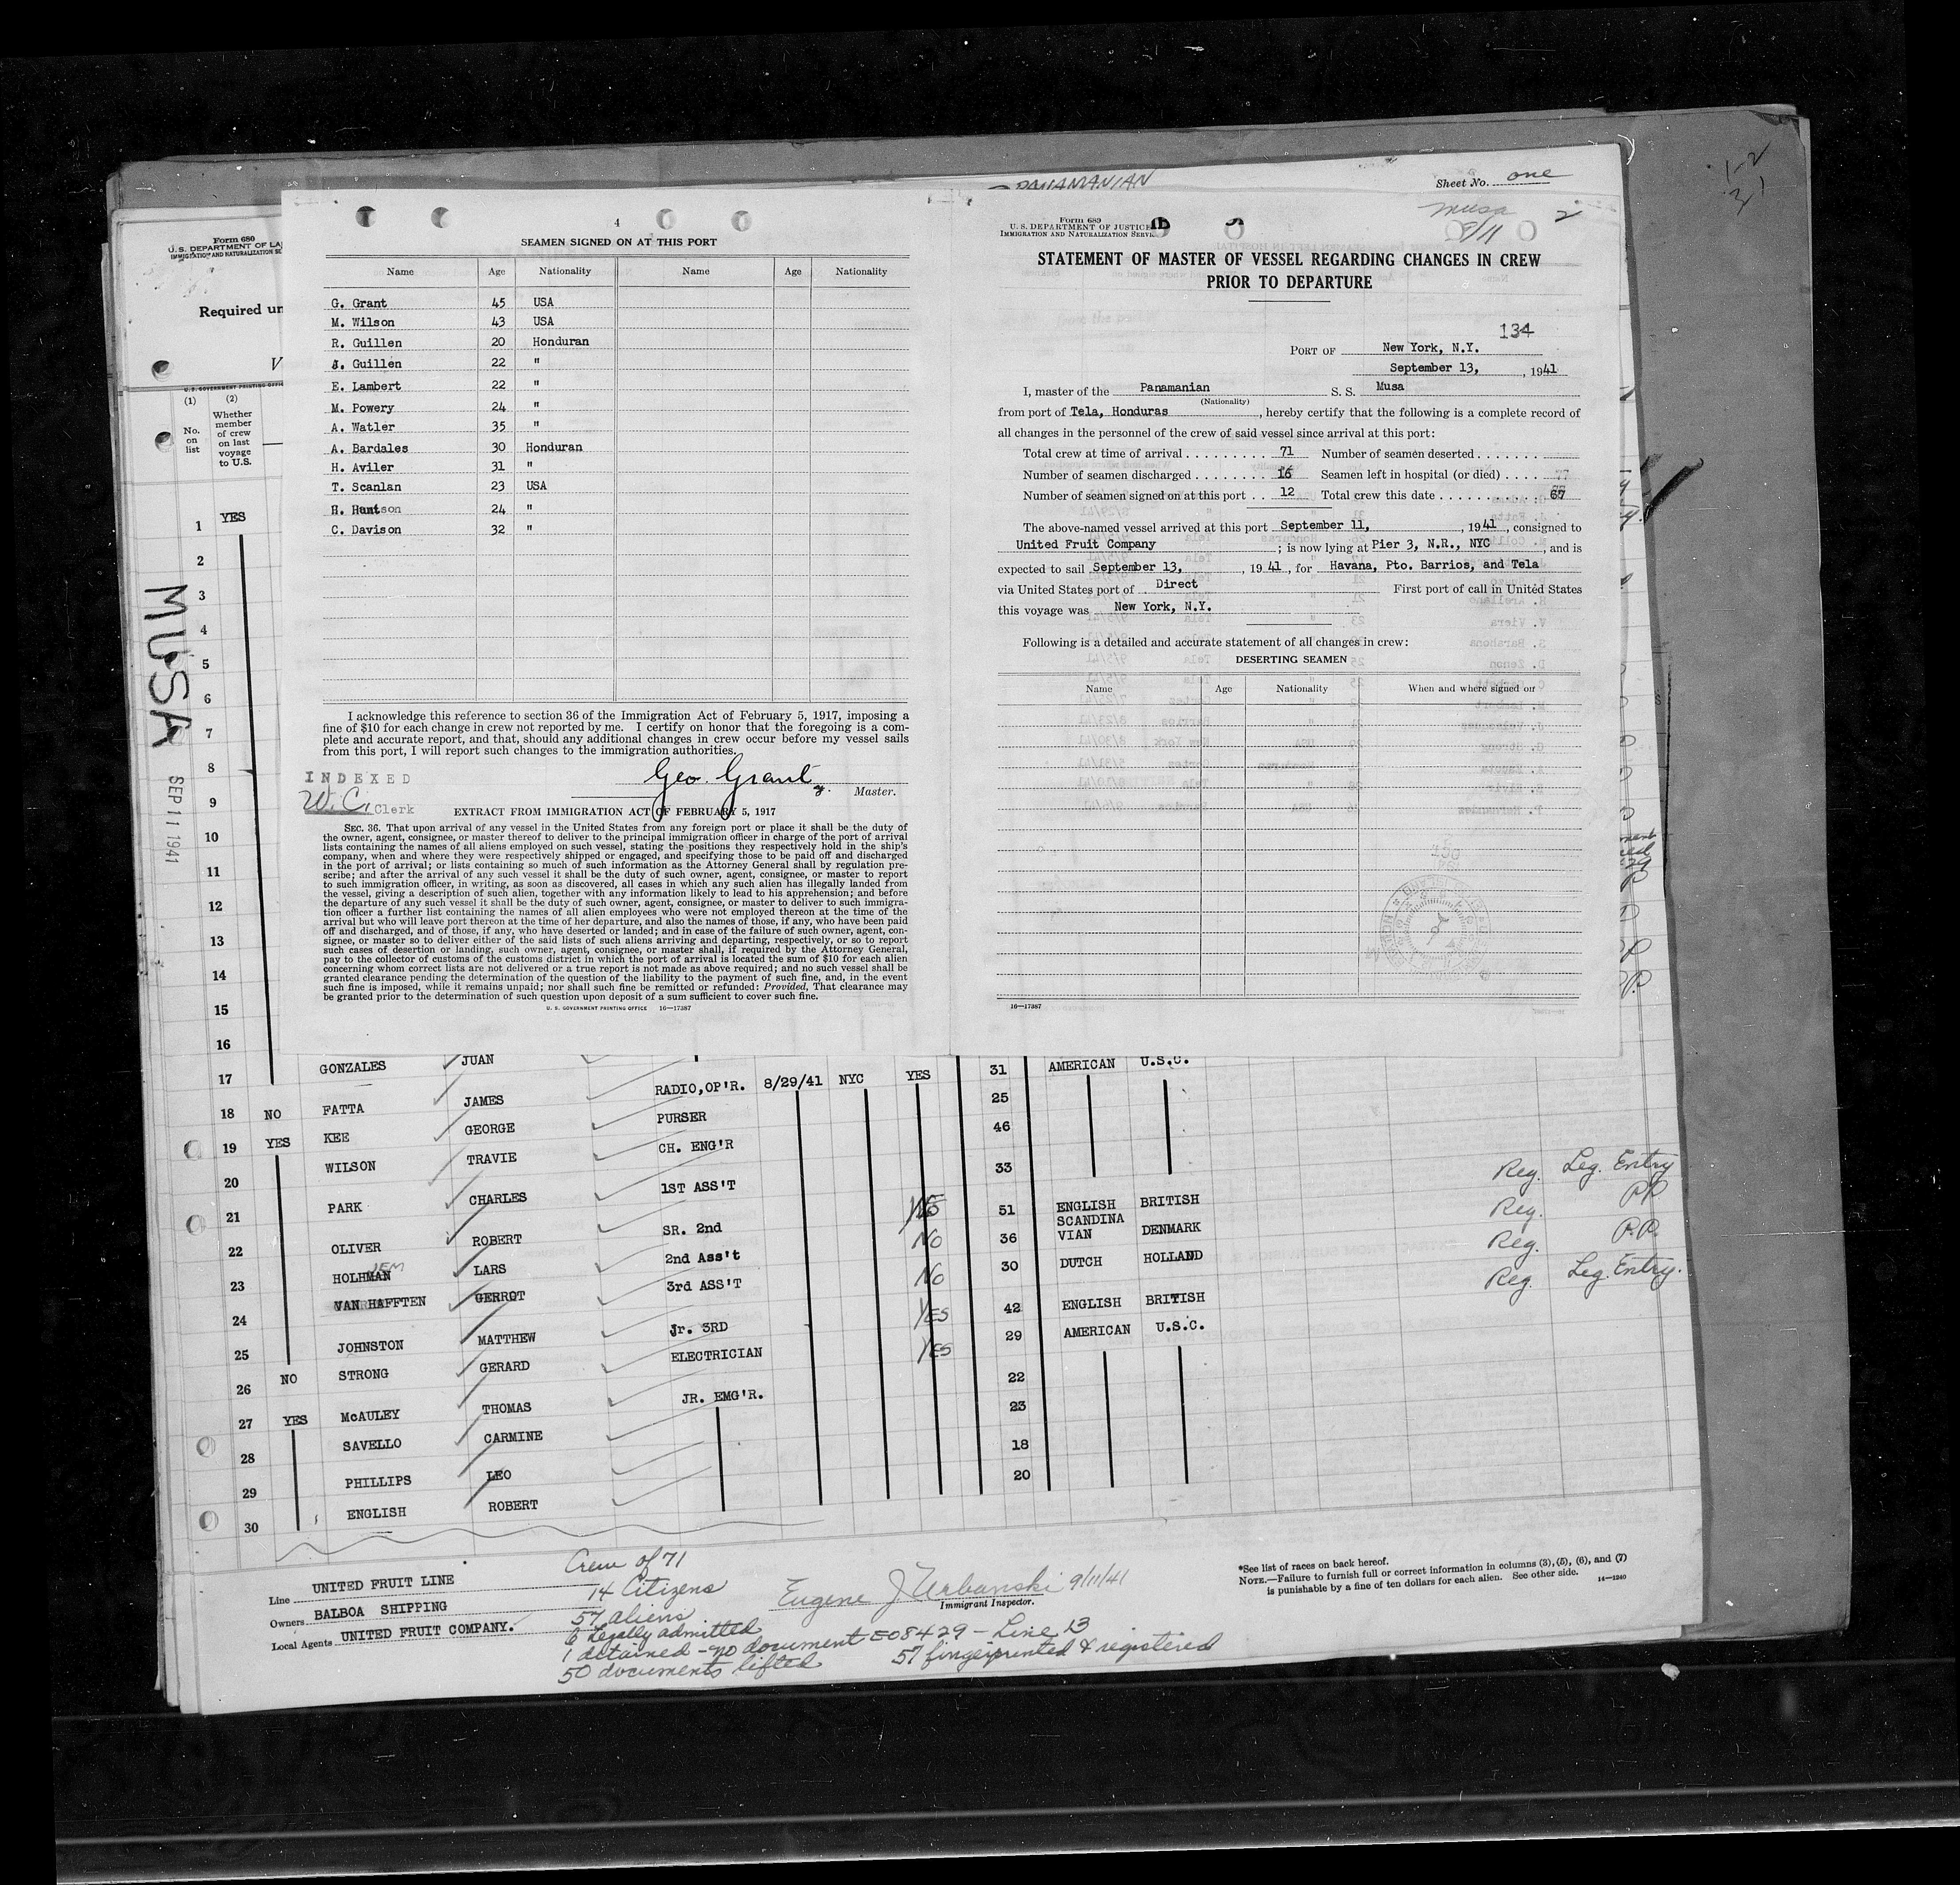 PANAMANIAN
Sheet No. one
Musa 2
9/11
Form 680
U. S. DEPARTMENT OF LA
IMMIGRATION AND NATURALIZATION SE
Required un
V
(1) (2)
No. on list
Whether member of crew on last voyage to U.S.
MUSA
SEP 11 1941
4
SEAMEN SIGNED ON AT THIS PORT
Name Age Nationality Name Age Nationality
G. Grant 45 USA
M. Wilson 43 USA
R. Guillen 20 Honduran
J. Guillen 22 "
E. Lambert 22 "
M. Powery 24 "
A. Watler 35 "
A. Bardales 30 Honduran
H. Aviler 31 "
T. Scanlan 23 USA
24 "
C. Davison 32 "
I acknowledge this reference to section 36 of the Immigration Act of February 5, 1917, imposing a
fine of $10 for each change in crew not reported by me. I certify on honor that the foregoing is a com-
plete and accurate report, and that, should any additional changes in crew occur before my vessel sails
from this port, I will report such changes to the immigration authorities.
INDEXED
W.C. Clerk
Geo. Grant
Master.
EXTRACT FROM IMMIGRATION ACT OF FEBRUARY 5, 1917
SEC. 36. That upon arrival of any vessel in the United States from any foreign port or place it shall be the duty of
the owner, agent, consignee, or master thereof to deliver to the principal immigration officer in charge of the port of arrival
lists containing the names of all aliens employed on such vessel, stating the positions they respectively hold in the ship's
company, when and where they were respectively shipped or engaged, and specifying those to be paid off and discharged
in the port of arrival; or lists containing so much of such information as the Attorney General shall by regulation pre-
scribe; and after the arrival of any such vessel it shall be the duty of such owner, agent, consignee, or master to report
to such immigration officer, in writing, as soon as discovered, all cases in which any such alien has illegally landed from
the vessel, giving a description of such alien, together with any information likely to lead to his apprehension; and before
the departure of any such vessel it shall be the duty of such owner, agent, consignee, or master to deliver to such immigra-
tion officer a further list containing the names of all alien employees who were not employed thereon at the time of the
arrival but who will leave port thereon at the time of her departure, and also the names of those, if any, who have been paid
off and discharged, and of those, if any, who have deserted or landed; and in case of the failure of such owner, agent, con-
signee, or master so to deliver either of the said lists of such aliens arriving and departing, respectively, or so to report
such cases of desertion or landing, such owner, agent, consignee, or master shall, if required by the Attorney General,
pay to the collector of customs of the customs district in which the port of arrival is located the sum of $10 for each alien
concerning whom correct lists are not delivered or a true report is not made as above required; and no such vessel shall be
granted clearance pending the determination of the question of the liability to the payment of such fine, and, in the event
such fine is imposed, while it remains unpaid; nor shall such fine be remitted or refunded: Provided, That clearance may
be granted prior to the determination of such question upon deposit of a sum sufficient to cover such fine.
U. S. GOVERNMENT PRINTING OFFICE 16—17387
Form 689
U. S. DEPARTMENT OF JUSTICE
IMMIGRATION AND NATURALIZATION SERVI
STATEMENT OF MASTER OF VESSEL REGARDING CHANGES IN CREW
PRIOR TO DEPARTURE
134
PORT OF New York, N.Y.
September 13, , 1941
I, master of the Panamanian S. S. Musa
(Nationality)
from port of Tela, Honduras , hereby certify that the following is a complete record of
all changes in the personnel of the crew of said vessel since arrival at this port:
Total crew at time of arrival . . . . . . . . . 71 Number of seamen deserted . . . . . . .
Number of seamen discharged . . . . . . . 16 Seamen left in hospital (or died) . . . .
Number of seamen signed on at this port . . 12 Total crew this date . . . . . . . . . . . 67
The above-named vessel arrived at this port September 11, , 1941 , consigned to
United Fruit Company ; is now lying at Pier 3, N.R., NYC , and is
expected to sail September 13, , 19 41 , for Havana, Pto. Barrios, and Tela
via United States port of Direct First port of call in United States
this voyage was New York, N.Y.
Following is a detailed and accurate statement of all changes in crew:
DESERTING SEAMEN
Name Age Nationality When and where signed on
16—17387
1 YES
2
3
4
5
6
7
8
9
10
11
12
13
14
15
16
17 GONZALES JUAN
18 NO FATTA JAMES RADIO,OP'R. 8/29/41 NYC YES 31 AMERICAN U.S.C.
19 YES KEE GEORGE PURSER 25
20 WILSON TRAVIE CH. ENG'R 46
21 PARK CHARLES 1ST ASS'T 33 Reg. Leg. Entry
22 OLIVER ROBERT SR. 2nd 51 ENGLISH BRITISH Reg. P.P.
23 HOLHMAN JEM LARS 2nd Ass't No 36 SCANDINA VIAN DENMARK Reg. P.P.
24 VAN HAFFTEN GERROT 3rd ASS'T No 30 DUTCH HOLLAND Reg. Leg. Entry.
25 JOHNSTON MATTHEW Jr. 3RD YES 42 ENGLISH BRITISH
26 NO STRONG GERARD ELECTRICIAN YES 29 AMERICAN U.S.C.
27 YES McAULEY THOMAS JR. EMG'R. 22
28 SAVELLO CARMINE 23
29 PHILLIPS LEO 18
30 ENGLISH ROBERT 20
Line UNITED FRUIT LINE
Owners BALBOA SHIPPING
Local Agents UNITED FRUIT COMPANY.
Crew of 71
14 Citizens
57 aliens
6 Legally admitted
1 detained - no document E08429 - Line 13
50 documents lifted 57 fingerprinted & registered
Eugene J Urbanski 9/11/41
Immigrant Inspector.
*See list of races on back hereof.
NOTE.—Failure to furnish full or correct information in columns (3), (5), (6), and (7)
is punishable by a fine of ten dollars for each alien. See other side. 14—1240